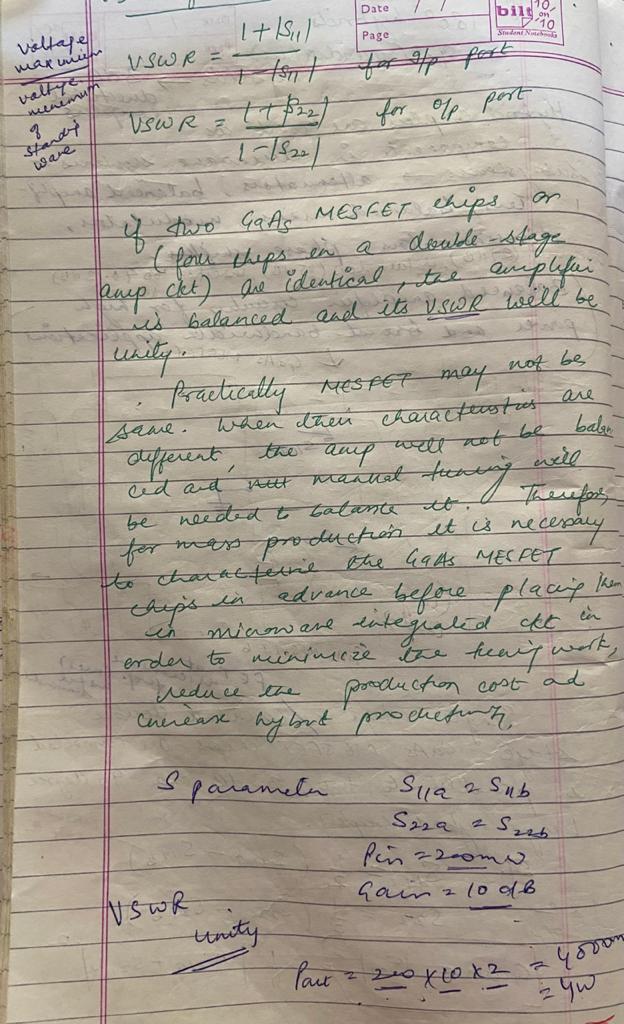 Date / /
Page
bilt 10 on 10
Student Notebooks
voltage
maximum
voltage
minimum
of
standing
wave
VSWR = 1+|S11| / 1-|S11| for i/p port
VSWR = 1+|S22| / 1-|S22| for o/p port
if two GaAs MESFET chips or
(four chips in a double-stage
amp ckt) are identical, the amplifier
is balanced and its VSWR will be
unity.
. Practically MESFET may not be
same. When their characteristics are
different, the amp will not be balan
ced and manual tuning will
be needed to balance it. Therefore,
for mass production it is necessary
to characterize the GaAs MESFET
chips in advance before placing them
in microwave integrated ckt in
order to minimize the tuning work,
reduce the production cost ad
increase
S parameter S11a = S11b
S22a = S22b
Pin = 200mw
Gain = 10 dB
VSWR
Unity
Pout = 200 X 10 X 2 = 4000m
= 4W